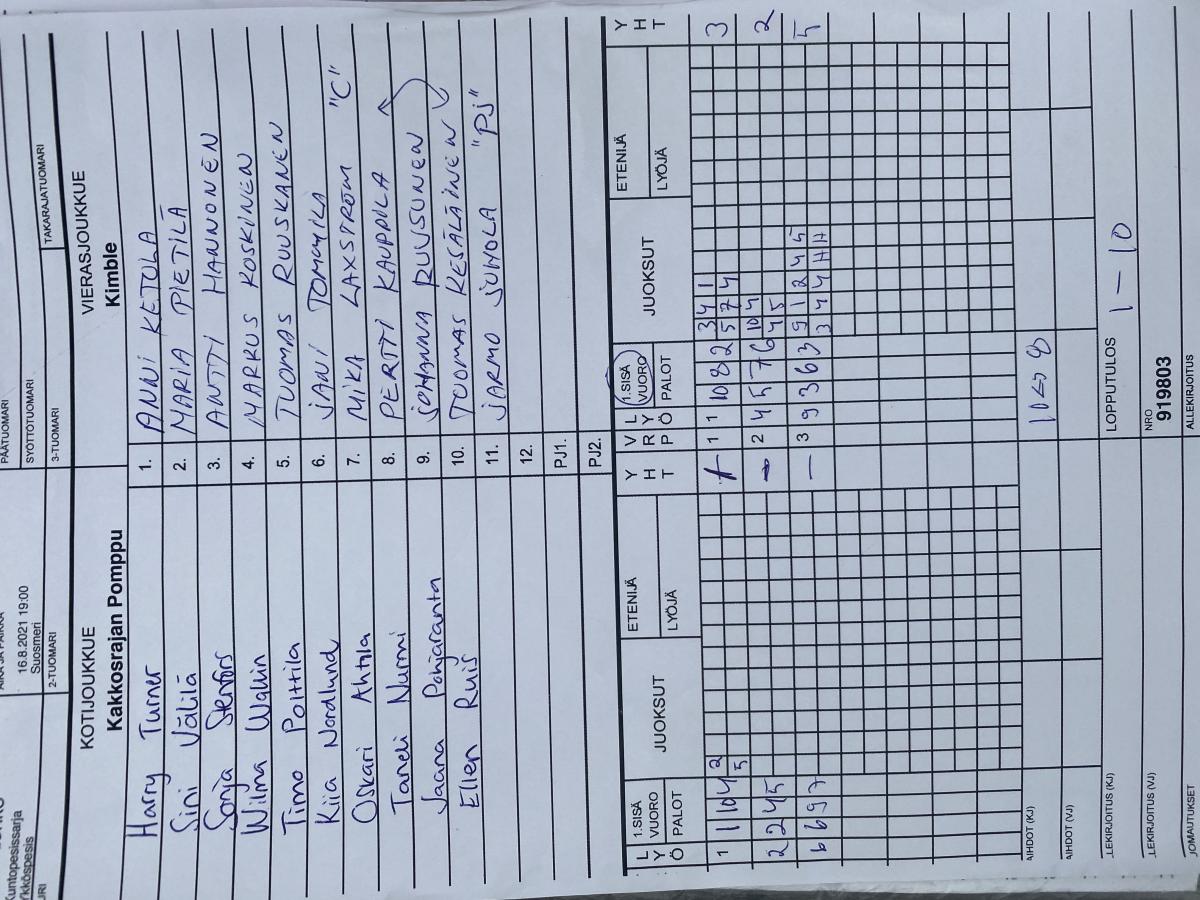 Kuntopesissarja
Ykköspesis
16.8.2021 19:00
Suosmeri
PÄÄTUOMARI
SYÖTTÖTUOMARI
2-TUOMARI
3-TUOMARI
TAKARAJATUOMARI
KOTIJOUKKUE
VIERASJOUKKUE
Kakkosrajan Pomppu
Kimble
Harry Turner 1. ANNI KETOLA
Sini Välilä 2. MARIA PIETILÄ
Sonja Stenfors 3. ANTTI HANNONEN
Wilma Wallin 4. MARKUS KOSKINEN
Timo Polttila 5. TUOMAS RUUSKANEN
Kiia Nordlund 6. JANI TOMMILA
Oskari Ahtila 7. MIKA LAXSTRÖM "C"
Taneli Nurmi 8. PERTTI KAUPPILA
Jaana Pohjaranta 9. JOHANNA RUUSUNEN
Ellen Ruis 10. TUOMAS KESÄLÄINEN
11. JARMO JUHOLA "PJ"
12.
PJ1.
PJ2.
LYÖ 1.SISÄ VUORO PALOT JUOKSUT ETENIJÄ LYÖJÄ YHT VRP LYÖ 1.SISÄ VUORO PALOT JUOKSUT ETENIJÄ LYÖJÄ YHT
1 1 10 4 2 1 1 1 10 8 2 3 4 1 3
5 5 7 4
2 2 4 5 - 2 2 4 5 7 6 10 4 2
4 5
6 6 9 7 - 3 9 3 6 3 9 1 2 4 5 5
3 4 4 H H
AIHDOT (KJ) 10<>8
AIHDOT (VJ)
LOPPUTULOS 1 - 10
LLEKIRJOITUS (KJ)
LLEKIRJOITUS (VJ) NRO
919803
JOMAUTUKSET ALLEKIRJOITUS